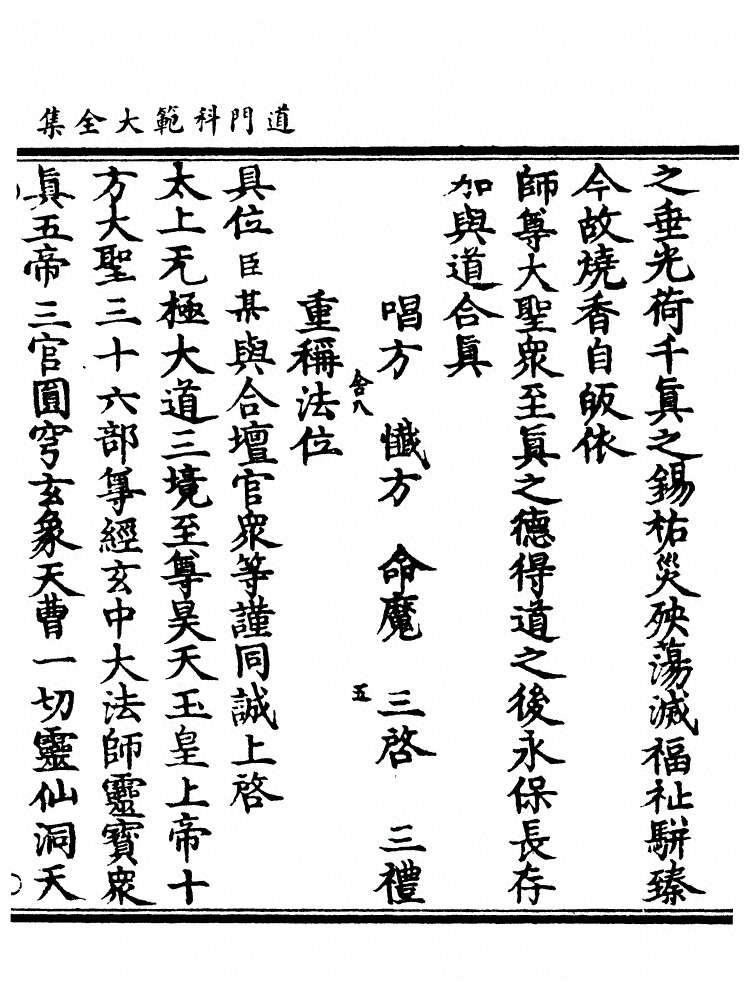 道門科範大全集
之垂光荷千眞之錫祐災殃蕩滅福祉駢臻
今故燒香自皈依
師尊大聖眾至眞之德得道之後永保長存
加與道合眞
唱方　懺方　命魔　三啓　三禮
舍八　五
重稱法位
具位臣某與合壇官眾等謹同誠上啓
太上无極大道三境至尊昊天玉皇上帝十
方大聖三十六部尊經玄中大法師靈寶眾
眞五帝三官圓穹玄象天曹一切靈仙洞天